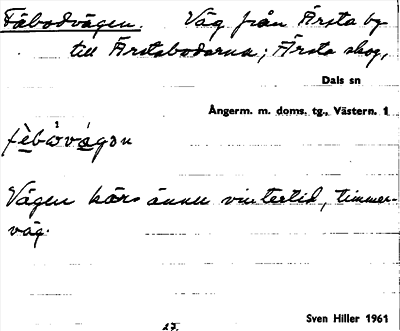 Fäbodvägen. Väg från Ärsta by
till Ärstabodarna; Ärsta skog,
Dals sn
Ångerm. m. doms. tg., Västern. 1
Vägen körs ännu vintertid, timmer-
väg.
27.
Sven Hiller 1961